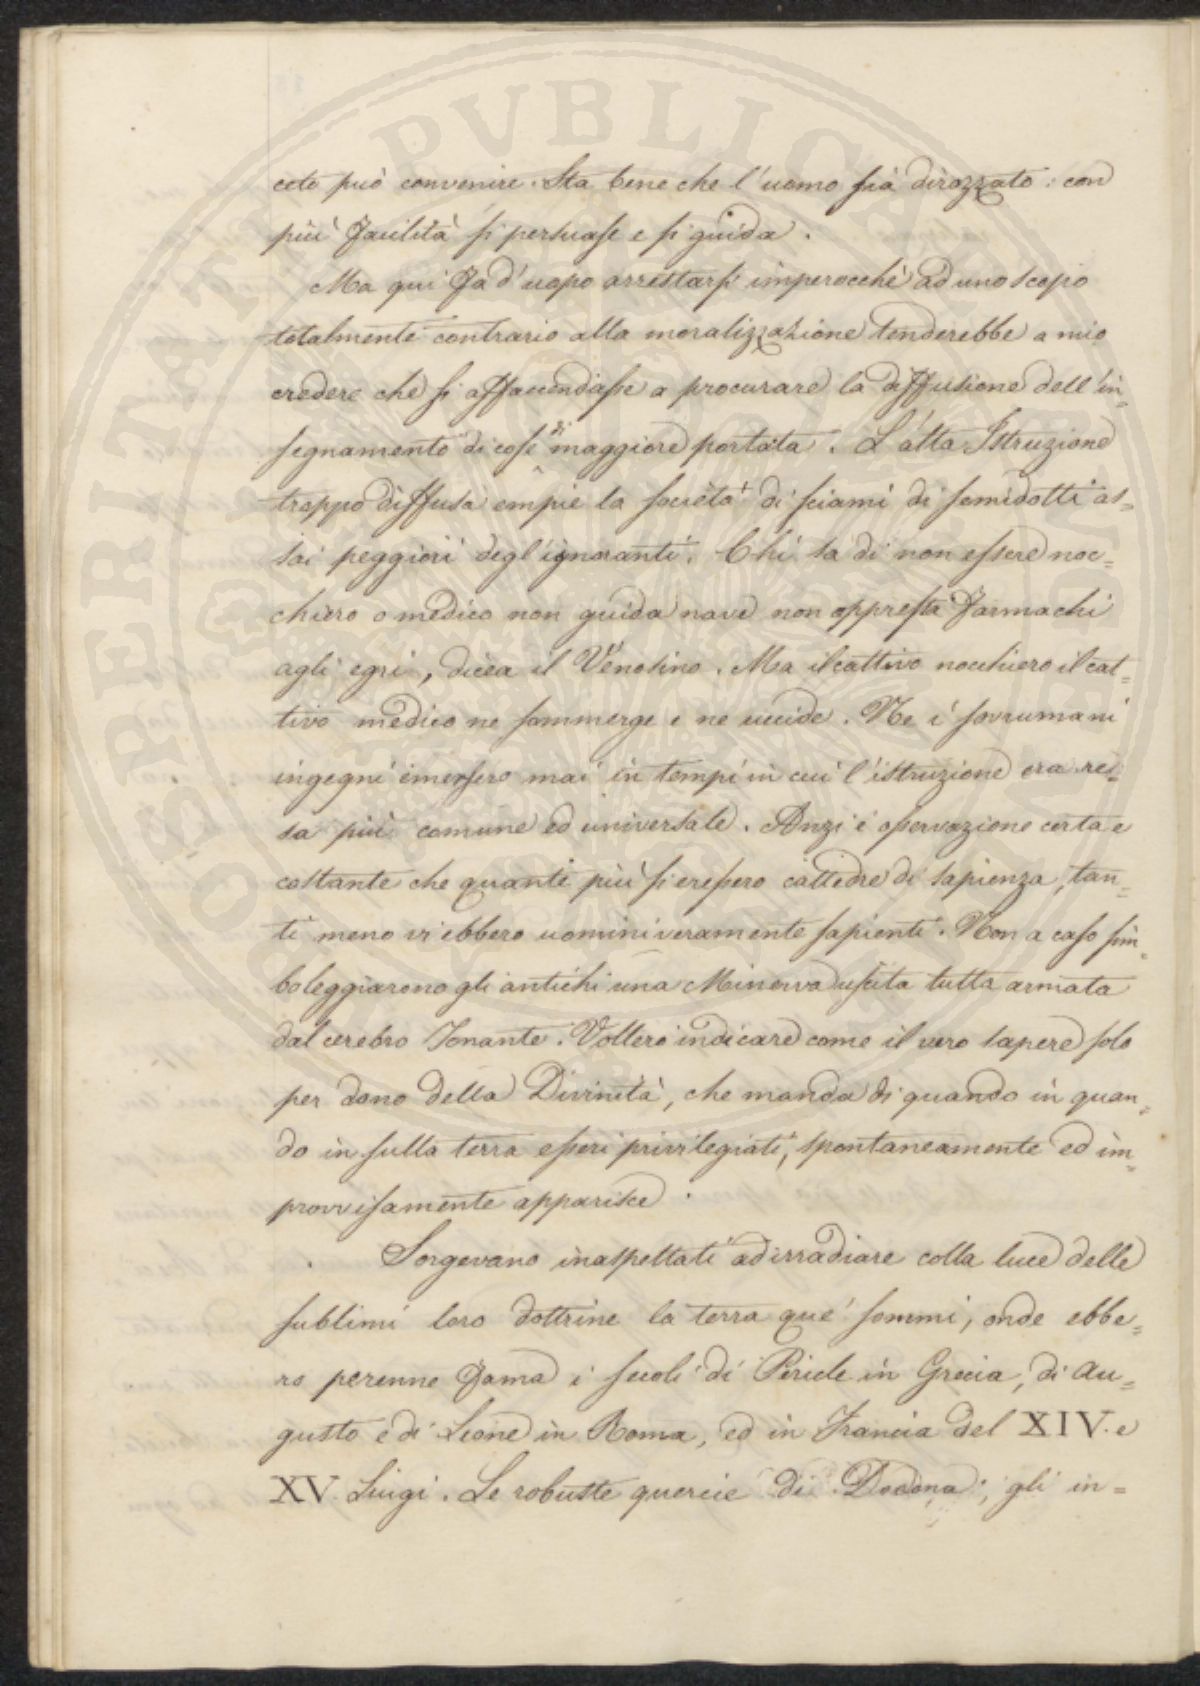 ceto può convenire. Sta bene che l'uomo sia dirozzato: con
più facilità si persuase e si guida.
Ma qui fa d'uopo arrestarsi imperocchè ad uno scopo
totalmente contrario alla moralizzazione tenderebbe a mio
credere chè si affaccendasse a procurare la diffusione dell'in=
segnamento di cose di maggiore portata. L'alta Istruzione
troppo diffusa empie la società di sciami di semidotti as=
sai peggiori degl'ignoranti. Chi sa di non essere noc=
chiero o medico non guida nave non appresta farmachi
agli egri, dicea il Venosino. Ma il cattivo nocchiero il cat=
tivo medico ne sommerge e ne uccide. Ne i sovrumani
ingegni emersero mai in tempi in cui l'istruzione era re=
sa più comune ed universale. Anzi è osservazione certa e
costante che quanti più si eressero cattedre di sapienza, tan=
ti meno vi ebbero uomini veramente sapienti. Non a caso sim=
boleggiarono gli antichi una Minerva uscita tutta armata
dal cerebro Tonante. Vollero indicare come il vero sapere solo
per dono della Divinità, che manda di quando in quan=
do in sulla terra esseri privilegiati, spontaneamente ed im=
provvisamente apparisce.
Sorgevano inaspettati ad irradiare colla luce delle
sublimi loro dottrine la terra que' sommi, onde ebbe=
ro perenne fama i secoli di Pericle in Grecia, di Au=
gusto e di Leone in Roma, ed in Francia del XIV. e
XV. Luigi. Le robuste quercie di Dodona, gli in=
POSPERITATI PVBLICAE AVGENDAE